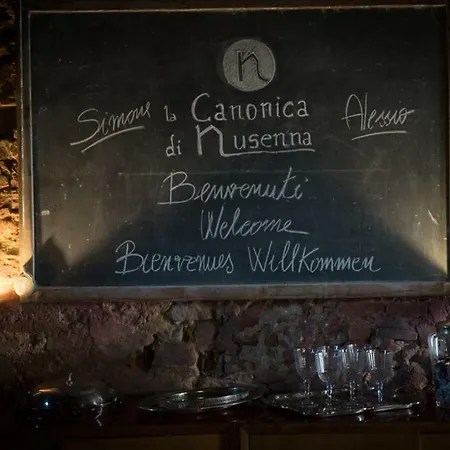 n
Simone la Canonica Alessio
di nusenna
Benvenuti
Welcome
Bienvenues Willkommen